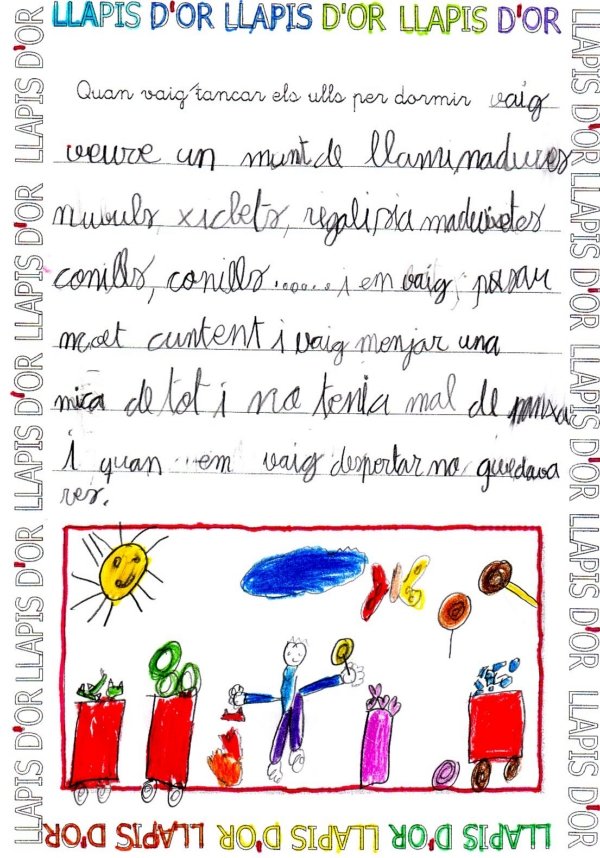 LLAPIS D'OR LLAPIS D'OR LLAPIS D'OR
Quan vaig tancar els ulls per dormir vaig
veure un munt de llaminadures
nuvuls, xiclets, regalisia maduixetes
conills, conills...... i em vaig posar
molt cuntent i vaig menjar una
mica de tot i no tenia mal de panxa
i quan em vaig despertar no quedava
res.
LLAPIS D'OR LLAPIS D'OR LLAPIS D'OR LLAPIS D'OR LLAPIS D'OR
LLAPIS D'OR LLAPIS D'OR LLAPIS D'OR LLAPIS D'OR LLAPIS D'OR
LLAPIS D'OR LLAPIS D'OR LLAPIS D'OR